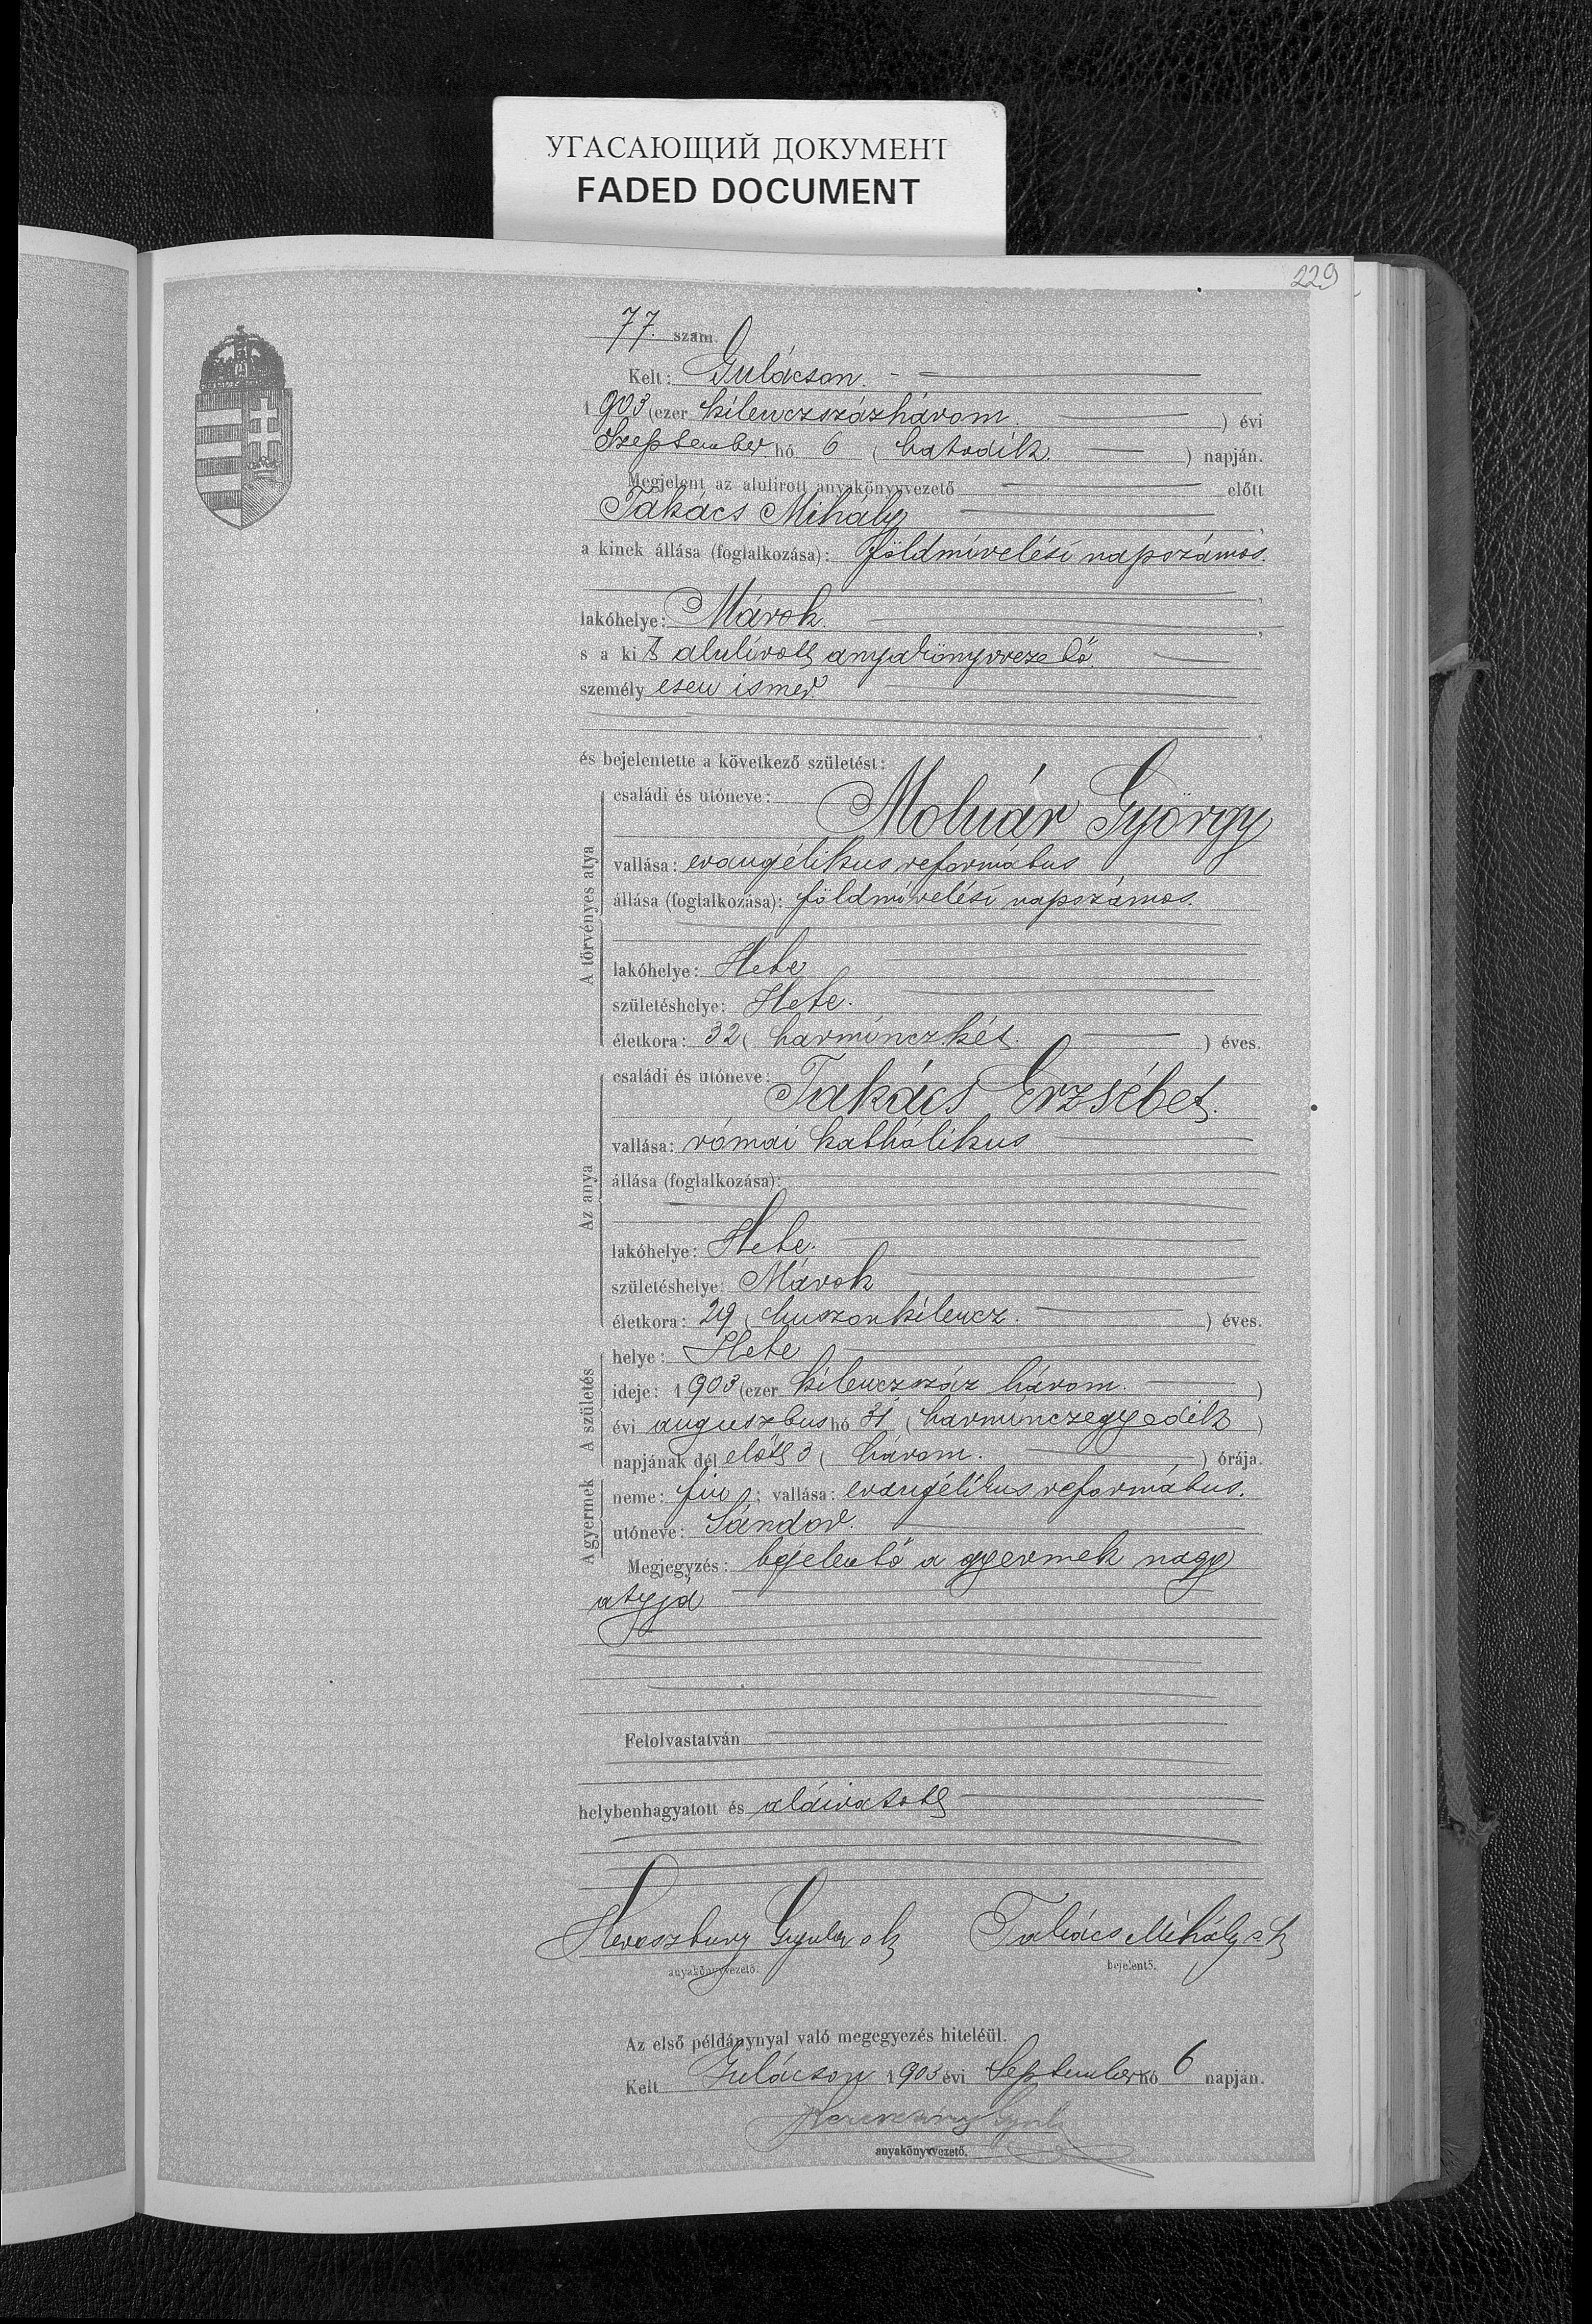 УГАСАЮЩИЙ ДОКУМЕНТ
FADED DOCUMENT
229
77. szám.
Kelt: Gulácson.
1903 (ezer kilenczszázhárom. ) évi
Szeptember hó 6 ( hatodik. ) napján.
Megjelent az alulirott anyakönyvvezető előtt
Takács Mihály ,
a kinek állása (foglalkozása): földmívelési napszámos.
,
lakóhelye: Márok. ,
s a kit alulírott anyakönyvvezető
személyesen ismer.
,
és bejelentette a következő születést:
A törvényes atya
családi és utóneve: Molnár György
vallása: evangélikus református
állása (foglalkozása): földmívelési napszámos.
lakóhelye: Hete
születéshelye: Hete.
életkora: 32 ( harminczkét. ) éves.
Az anya
családi és utóneve: Takács Erzsébet.
vallása: római katholikus
állása (foglalkozása):
lakóhelye: Hete.
születéshelye: Márok
életkora: 29 ( huszonkilencz. ) éves.
A születés
helye: Hete
ideje: 1903 (ezer kilenczszáz három. )
évi augusztus hó 31 ( harminczegyedik )
napjának dél előtt 3 ( három. ) órája.
A gyermek
neme: fiu ; vallása: evangélikus református.
utóneve: Sándor.
Megjegyzés: bejelentő a gyermek nagy
atyja
Felolvastatván
helybenhagyatott és aláiratott
Gyula sk Takács Mihály sk
anyakönyvvezető. bejelentő.
Az első példánynyal való megegyezés hiteléül.
Kelt Gulácson 1903 évi September hó 6 napján.
Gyula
anyakönyvvezető.